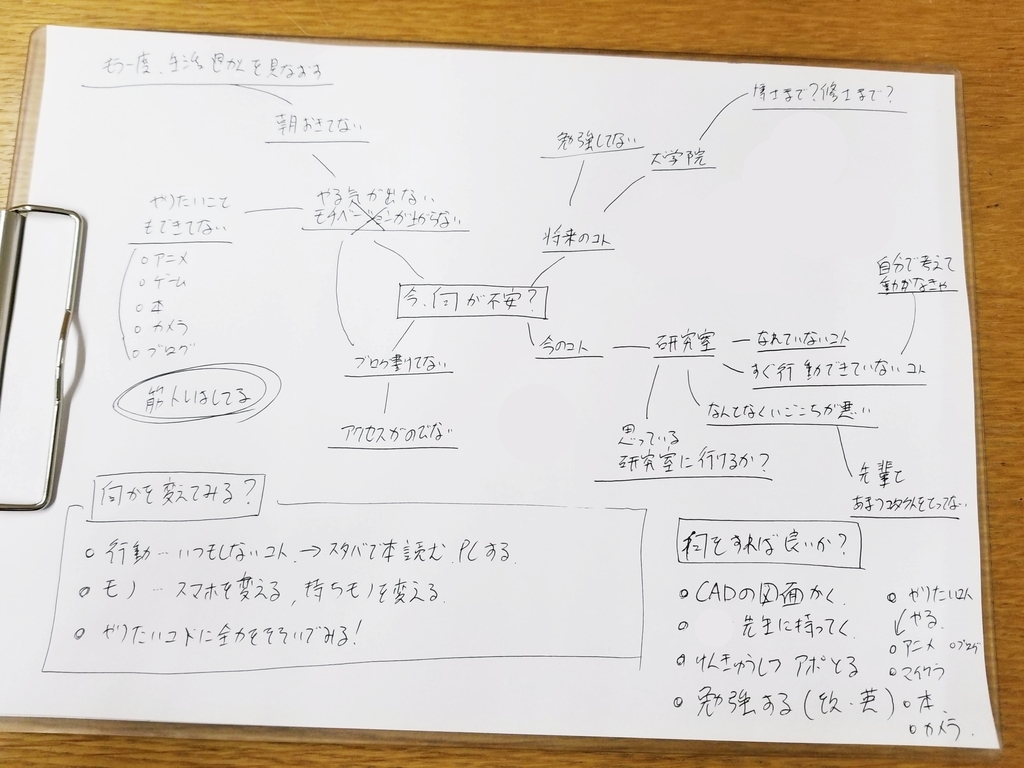 もう一度、生活を見なおす
朝おきてない
やる気が出ない
モチベーションが上がらない
やりたいこと
もできてない
アニメ
ゲーム
本
カメラ
ブログ
筋トレはしてる
今、何が不安?
ブログ書けてない
アクセスがのびない
勉強してない
大学院
博士まで?修士まで?
将来のコト
今のコト
研究室
なれていないコト
すぐ行動できていないコト
自分で考えて
動かなきゃ
なんてなくいごこちが悪い
先輩と
あまりコンタクトをとってない
思っている
研究室に行けるか?
何かを変えてみる?
行動…いつもしないコト→スタバで本読む PCする
モノ…スマホを変える、持ちモノを変える
やりたいコトに全力をそそいでみる!
何をすれば良いか?
CADの図面かく
先生に持ってく
けんきゅうしつ アポとる
勉強する(院・英)
やりたいコト
やる
アニメ ブログ
マイクラ
本
カメラ